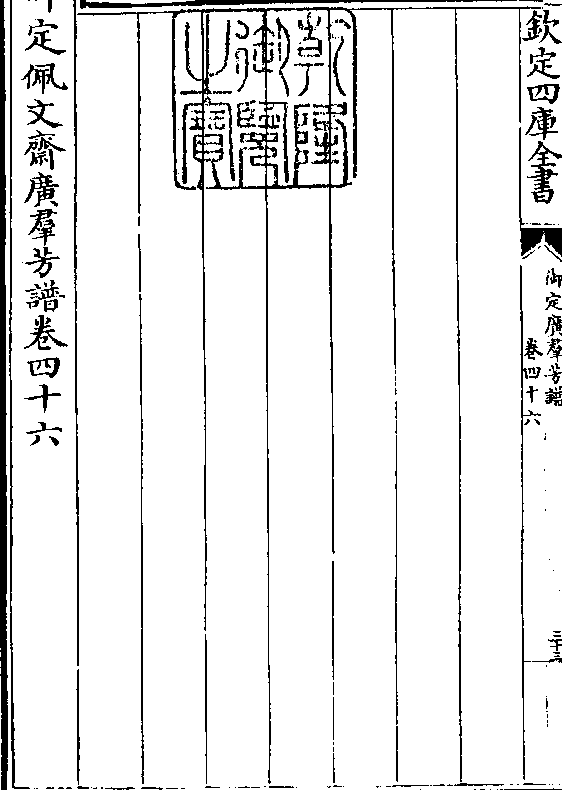 欽定四庫全書
御定廣羣芳譜
卷四十六
三十三
乾隆
御覽
之寶
御定佩文齋廣羣芳譜卷四十六